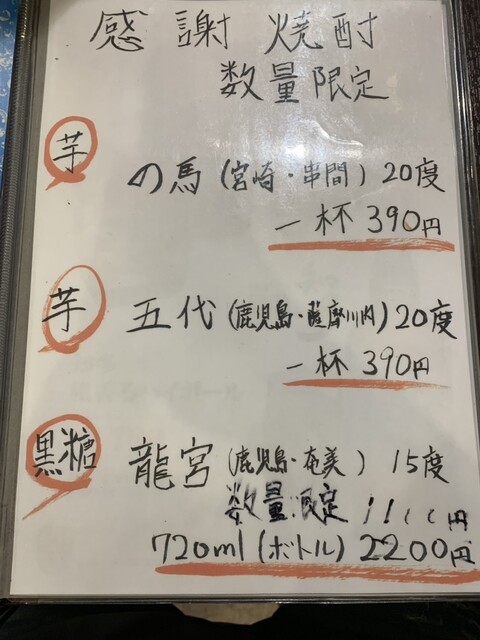 感謝 焼酎
数量限定
芋 の馬(宮崎・串間) 20度
一杯 390円
芋 五代(鹿児島・薩摩川内) 20度
一杯 390円
黒糖 龍宮(鹿児島・奄美) 15度
数量限定
720ml(ボトル) 2200円